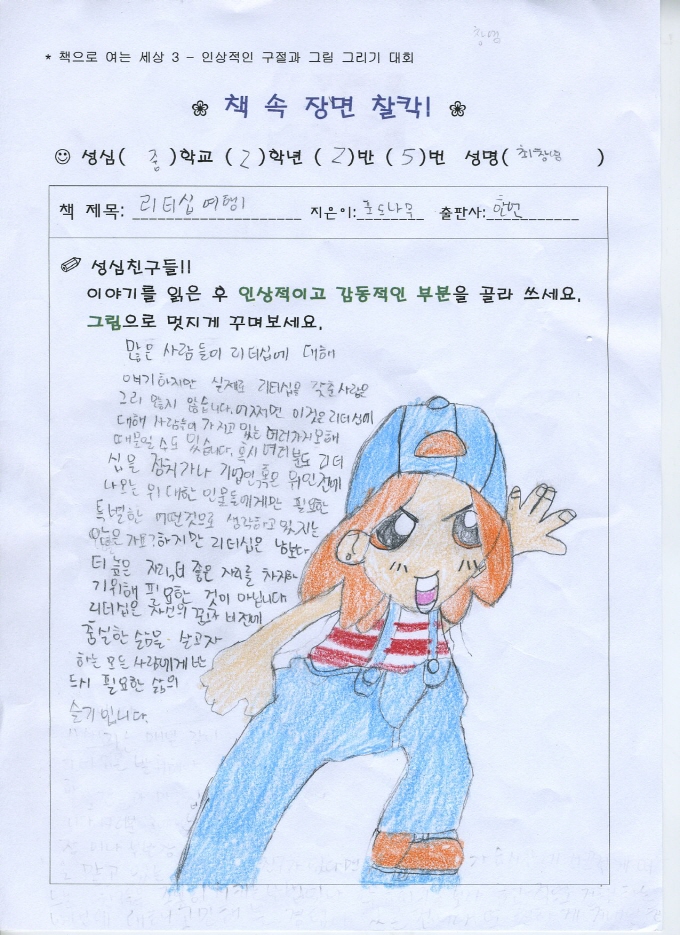 창영
* 책으로 여는 세상 3 - 인상적인 구절과 그림 그리기 대회
❀ 책 속 장면 찰칵! ❀
☺ 성심( 중 )학교 ( 2 )학년 ( 2 )반 ( 5 )번 성명( 최창영 )
책 제목: 리더십 여행1 지은이: 출판사:
성심친구들!!
이야기를 읽은 후 인상적이고 감동적인 부분을 골라 쓰세요.
그림으로 멋지게 꾸며보세요.
많은 사람들이 리더십에 대해
얘기하지만 실제로 리더십을 갖춘사람은
그리 많지 않습니다. 어쩌면 이것은 리더십에
대해 사람들이 가지고 있는 여러가지 오해
때문일 수도 있습니다. 혹시 여러분도 리더
십을 정치가나 기업인 혹은 위인전에
나오는 위대한 인물들에게만 필요한
특별한 어떤것으로 생각하고 있지는
않은가요? 하지만 리더십은 남보다
더 높은 자리, 더 좋은 자리를 차지하
기위해 필요한 것이 아닙니다
리더십은 자신의 꿈과 비전에
충실한 삶을 살고자
하는 모든 사람에게 반
드시 필요한 삶의
슬기입니다.